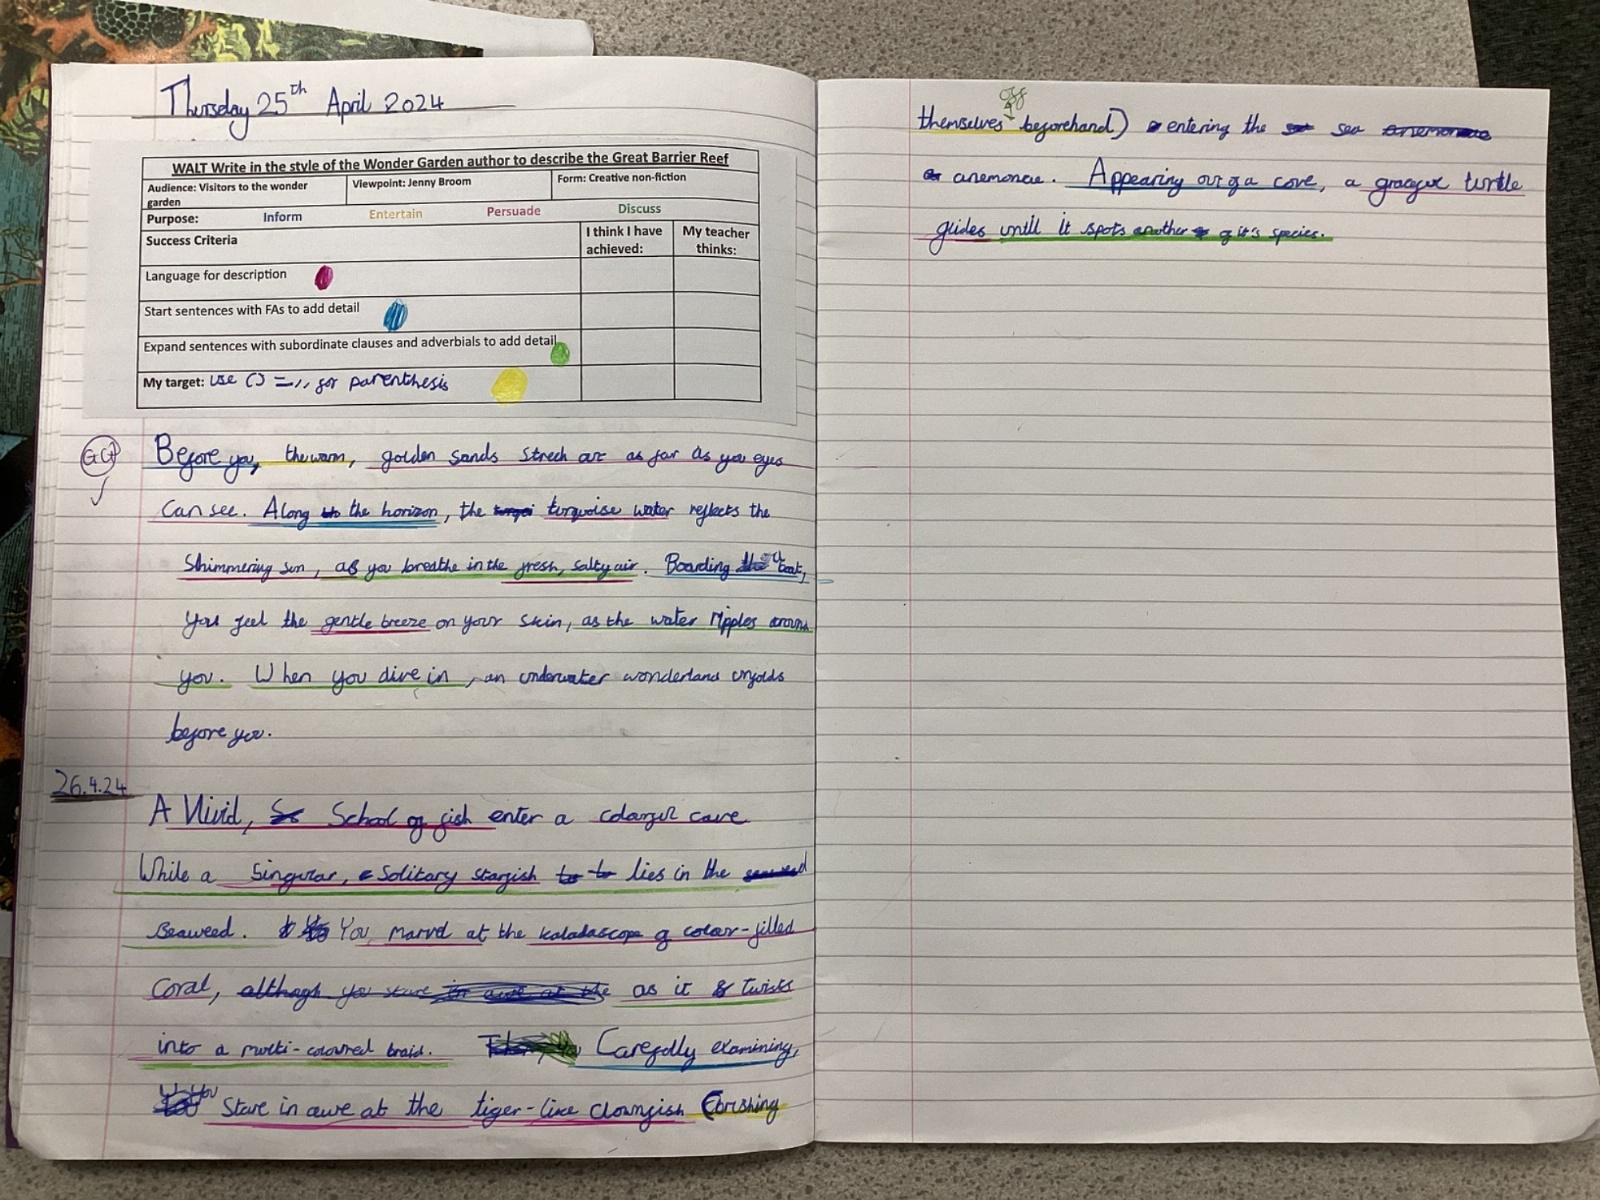 Thursday 25th April 2024
WALT Write in the style of the Wonder Garden author to describe the Great Barrier Reef
Audience: Visitors to the wonder garden
Viewpoint: Jenny Broom
Form: Creative non-fiction
Purpose: Inform Entertain Persuade Discuss
Success Criteria
I think I have achieved:
My teacher thinks:
Language for description
Start sentences with FAs to add detail
Expand sentences with subordinate clauses and adverbials to add detail
My target: use () = ,, for parenthesis
GG
Before you, the warm, golden sands strech out as far as you eyes
can see. Along the horizon, the turquoise water reflects the
Shimmering sun, as you breathe in the fresh, salty air. Boarding the boat,
you feel the gentle breeze on your skin, as the water ripples around
you. When you dive in, an underwater wonderland unfolds
before you.
26.4.24
A Vivid, School of fish enter a colourful cave
While a singular, solitary starfish lies in the
seaweed. You marvel at the kaladascope of colour-filled
coral, as it twists
into a multi-coloured braid. Carefully examining,
you stare in awe at the tiger-like clownfish (brushing
themselves off beforehand) entering the sea
anemonae. Appearing out of a cove, a graceful turtle
glides until it spots another of it's species.